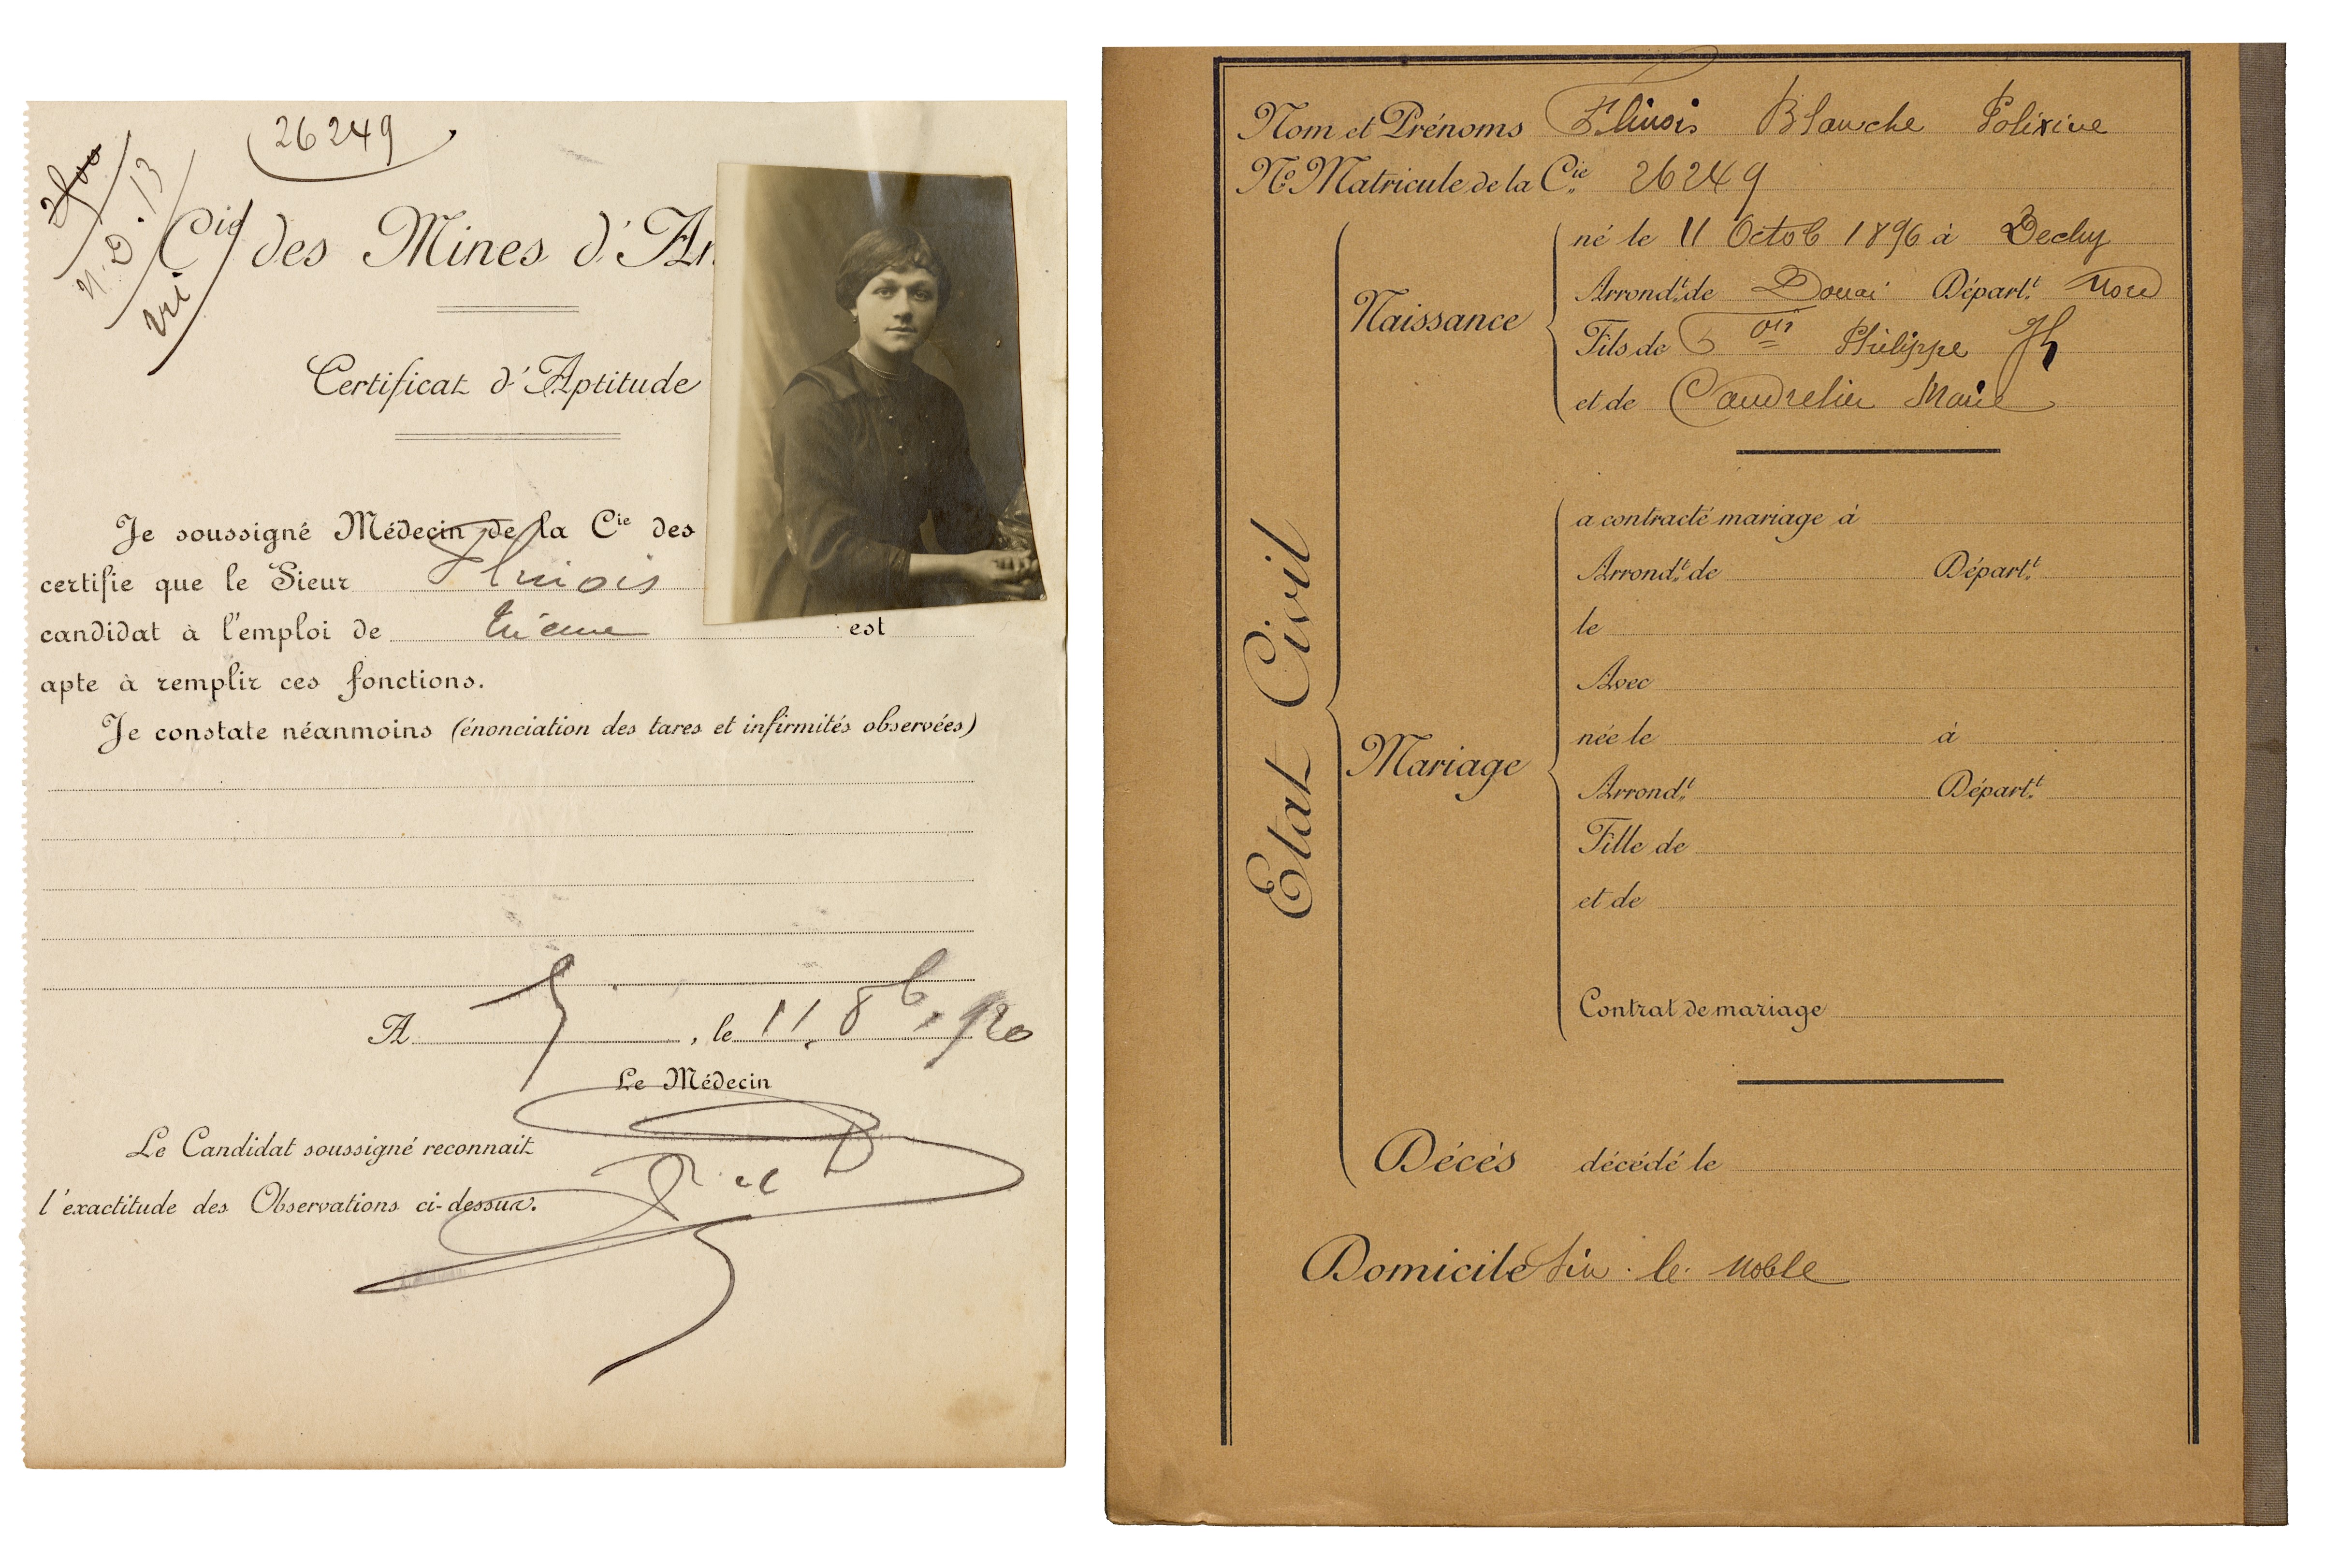 26249
N.D. 13
Cie des Mines d'An
Certificat d'Aptitude
Je soussigné Médecin de la Cie des
certifie que le Sieur Flinois
candidat à l'emploi de trieuse est
apte à remplir ces fonctions.
Je constate néanmoins (énonciation des tares et infirmités observées)
A , le 11. 8b. 920
Le Médecin
Le Candidat soussigné reconnait
l'exactitude des Observations ci-dessus.
Nom et Prénoms Flinois Blanche Polixine
No Matricule de la Cie 26249
Etat Civil
Naissance
né le 11 Octob 1896 à Dechy
Arrondt. de Douai Départt. Nord
Fils de Philippe Jh
et de Caudrelier Marie
Mariage
a contracté mariage à
Arrondt. de Départt.
le
Avec
née le à
Arrondt. Départt.
Fille de
et de
Contrat de mariage
Décès décédé le
Domicile Sin. le. Noble